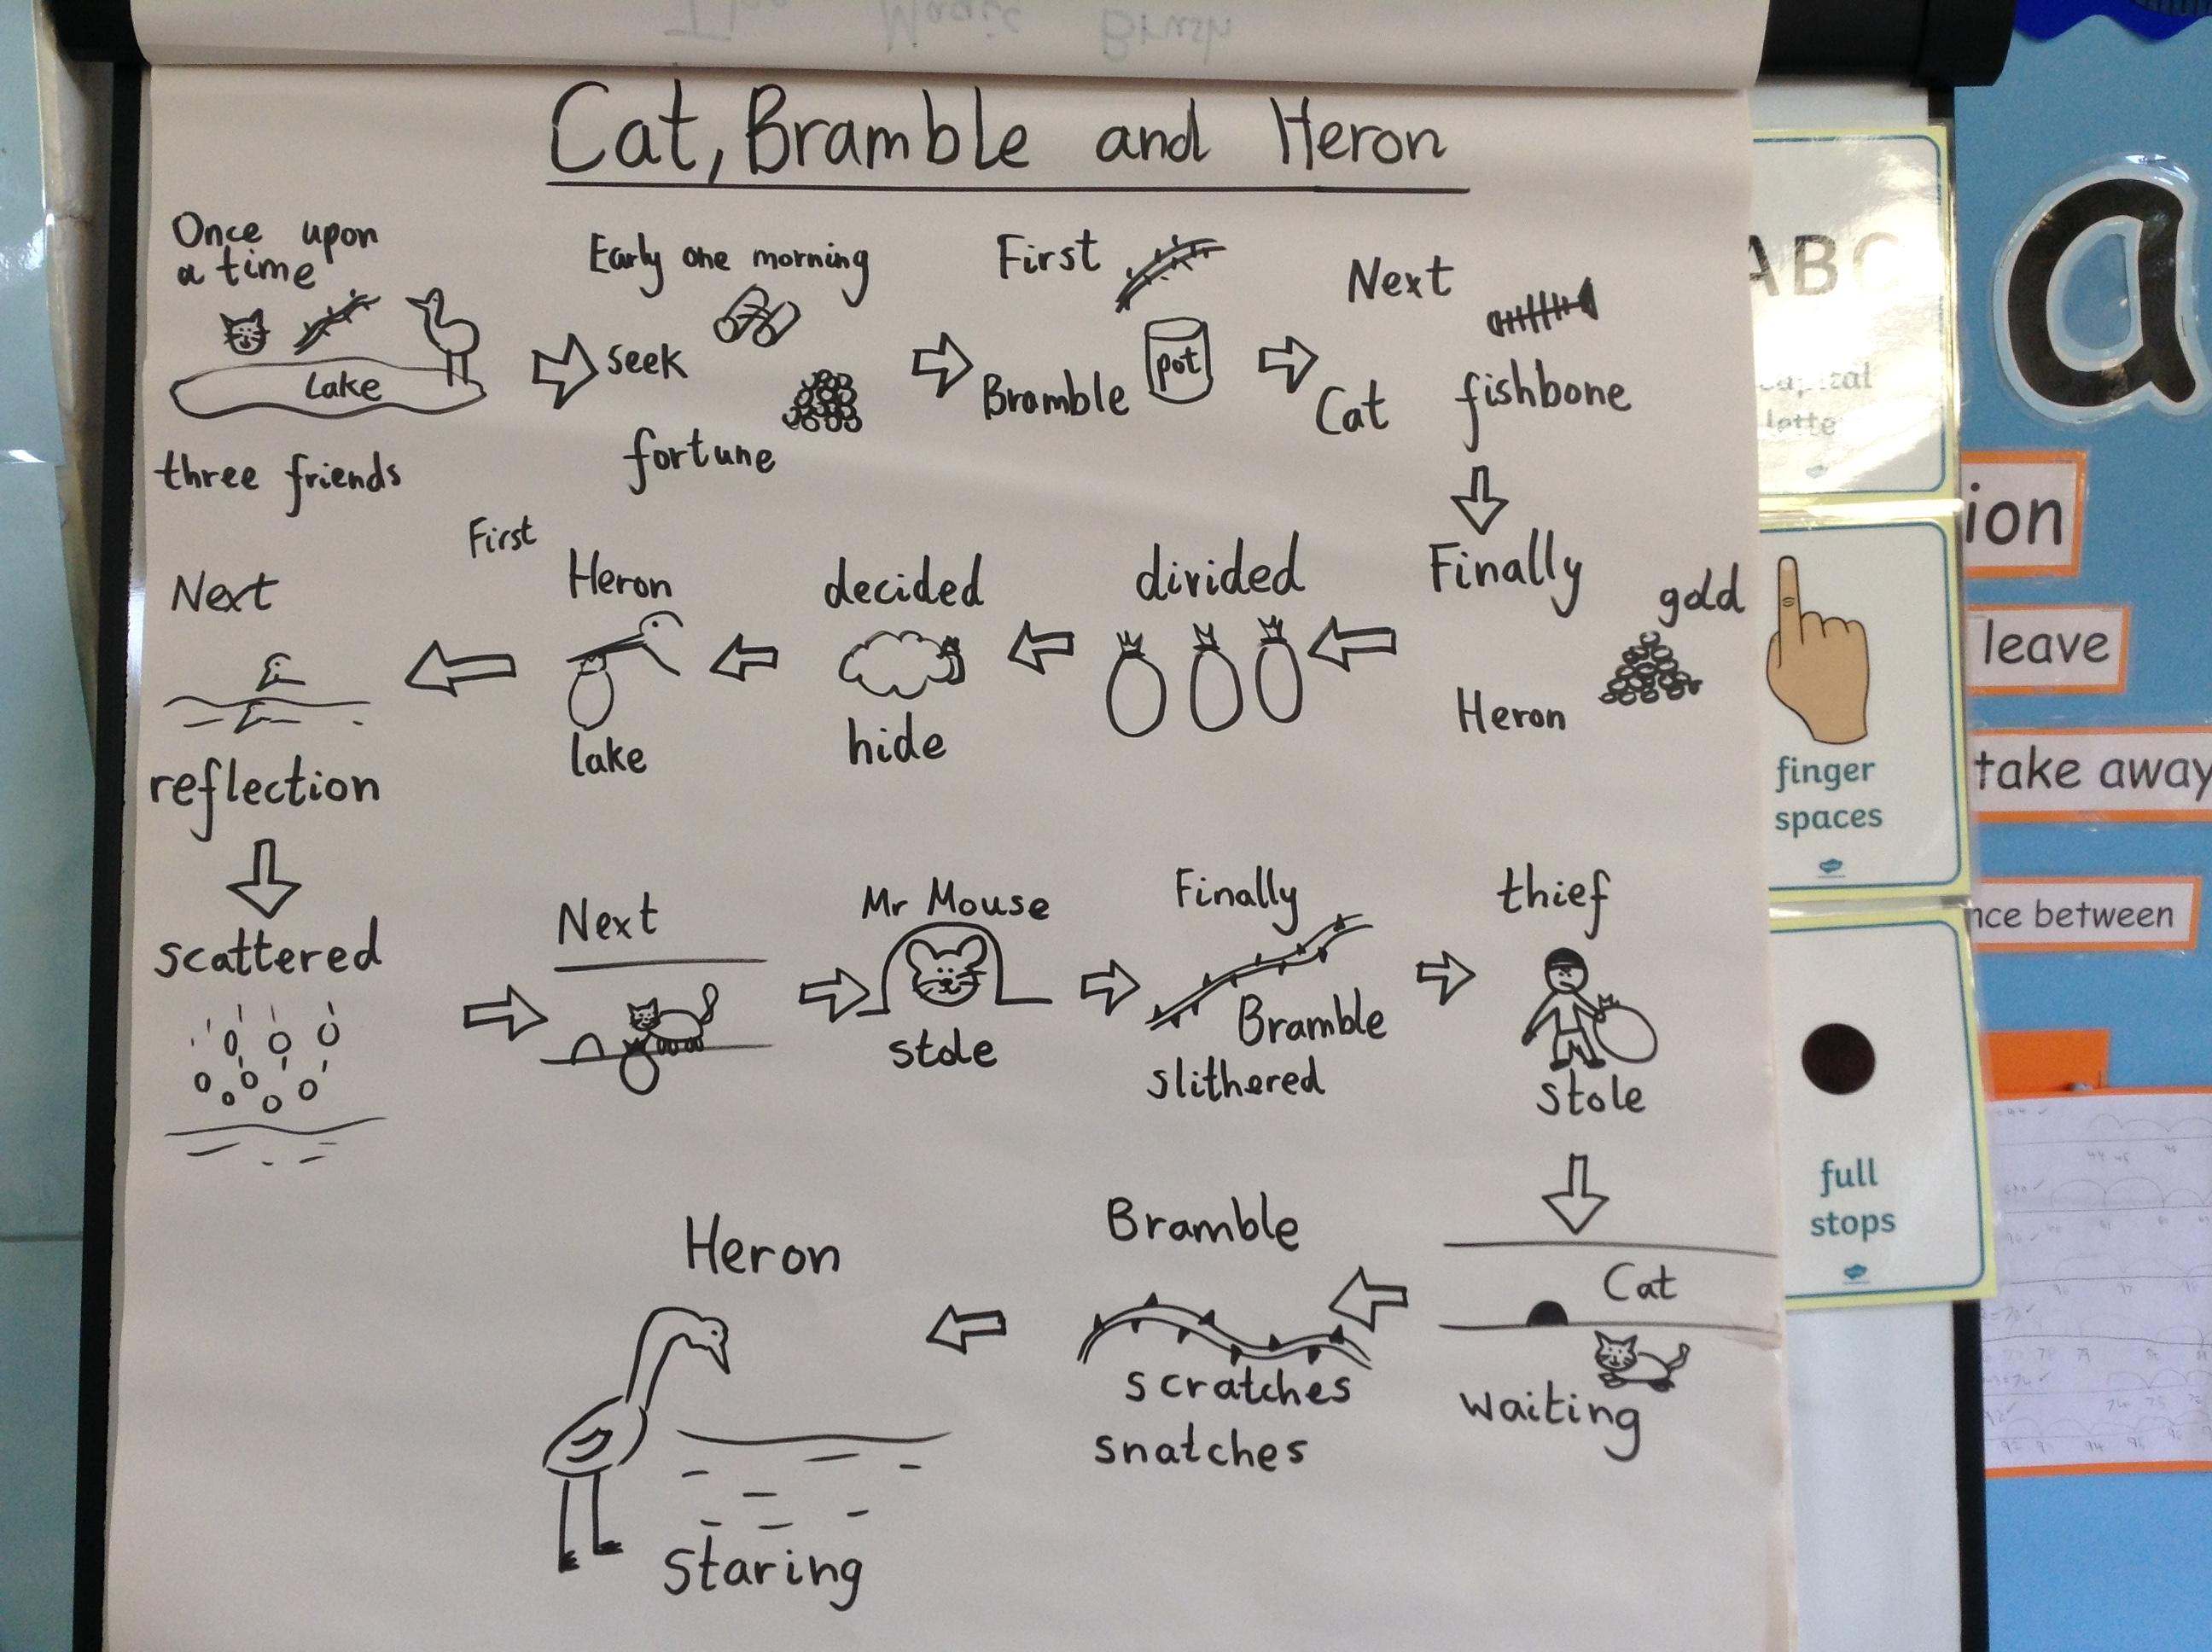 The Magic Brush
Cat, Bramble and Heron
Once upon
a time
Lake
three friends
Early one morning
seek
fortune
First
Bramble
pot
Next
Cat
fishbone
Finally
gold
Heron
divided
decided
hide
First
Heron
lake
Next
reflection
scattered
Next
Mr Mouse
stole
Finally
Bramble
slithered
thief
stole
Cat
waiting
Bramble
scratches
snatches
Heron
staring
ABC
capital
letter
finger
spaces
full
stops
a
ion
leave
take away
nce between